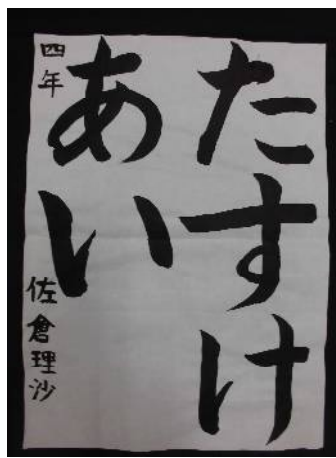 たすけ
あい
四年
佐倉理沙